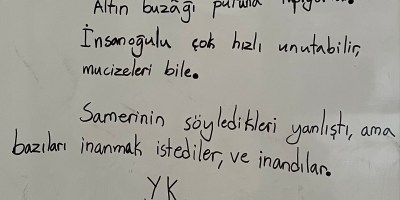 Altın buzağı
İnsanoğulu çok hızlı unutabilir,
mucizeleri bile.
Samerinin söyledikleri yanlıştı, ama
bazıları inanmak istediler, ve inandılar.
YK